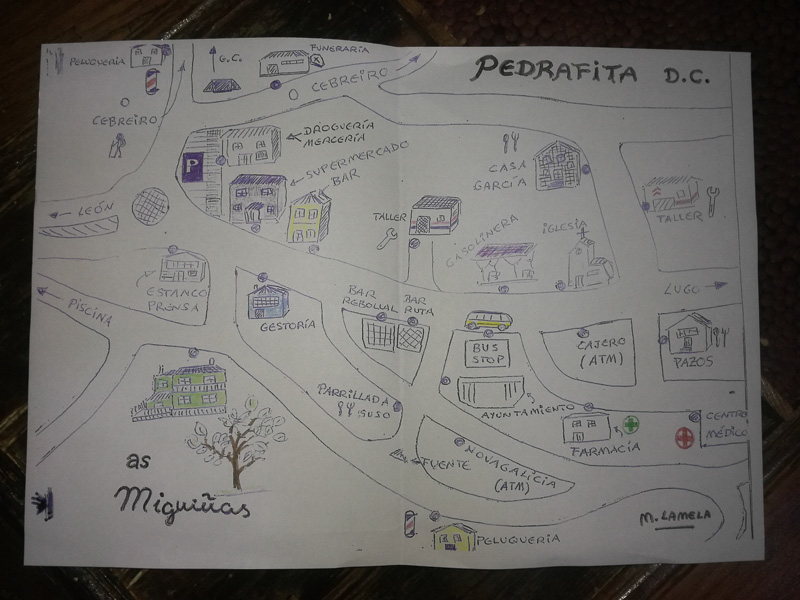 PELUQUERIA
G.C.
FUNERARIA
O CEBREIRO
PEDRAFITA D.C.
O
CEBREIRO
P
DROGUERÍA
MERCERÍA
SUPERMERCADO
BAR
CASA
GARCÍA
TALLER
← LEÓN
TALLER
GASOLINERA
IGLESIA
ESTANCO
PRENSA
PISCINA
GESTORÍA
BAR
REBOLLAL
BAR
RUTA
LUGO →
BUS
STOP
CAJERO
(ATM)
PAZOS
PARRILLADA
SUSO
AYUNTAMIENTO
FARMACIA
CENTRO
MÉDICO
FUENTE
NOVAGALICIA
(ATM)
as
Miguiñas
PELUQUERÍA
M. LAMELA